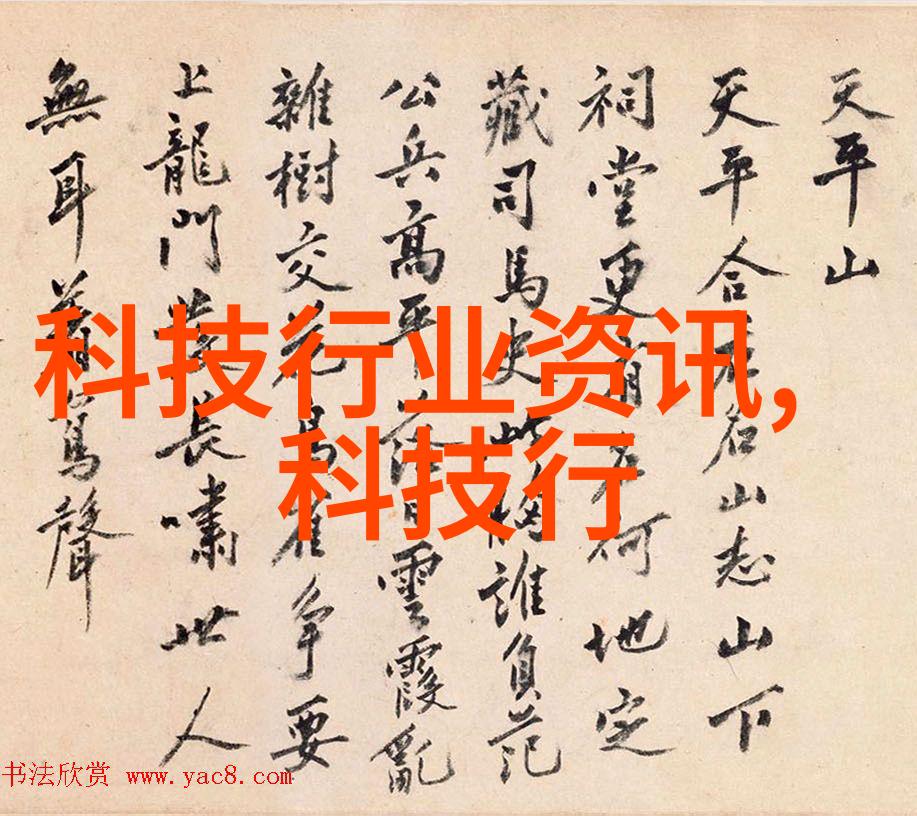 天平山
天平合名山志山下
祠堂更有何地定
藏司馬史此誰負范
公兵高平落日雲霞亂
雜樹交花鳥雀爭要
上龍門長嘯世人
無耳著聲
科技行业资讯,
科技行
书法欣赏 www.yac8.com